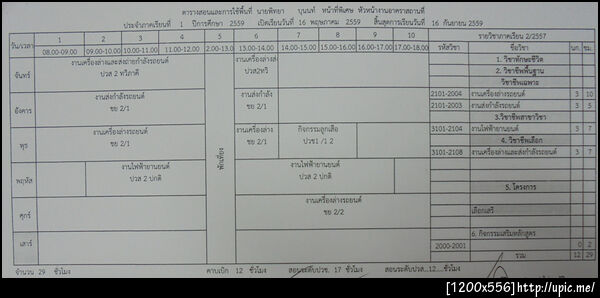 ตารางสอนและการใช้พื้นที่ นายพิทยา บุนนท์ หน้าที่พิเศษ หัวหน้างานอาคารสถานที่
ประจำภาคเรียนที่ 1 ปีการศึกษา 2559 เปิดเรียนวันที่ 16 พฤษภาคม 2559 สิ้นสุดการเรียนวันที่ 16 กันยายน 2559
วัน/เวลา 1 2 3 4 5 6 7 8 9 10 รายวิชาภาคเรียน 2/2557
08.00-09.00 09.00-10.00 10.00-11.00 11.00-12.00 2.00-13.0 13.00-14.00 14.00-15.00 15.00-16.00 16.00-17.00 17.00-18.00 รหัสวิชา ชื่อวิชา นก. ชม.
จันทร์ งานเครื่องล่างและส่งถ่ายกำลังรถยนต์ งานเครื่องล่างส่ง 1. วิชาทักษะชีวิต
ปวส 2 ทวิภาคี ปวส2ทวิ 2. วิชาชีพพื้นฐาน
วิชาชีพเฉพาะ
อังคาร งานส่งกำลังรถยนต์ งานส่งกำลัง 2101-2004 งานเครื่องล่างรถยนต์ 3 10
ชย 2/1 ชย 2/1 2101-2003 งานส่งกำลังรถยนต์ 3 5
3.วิชาชีพสาขาวิชา
พุธ งานเครื่องล่างรถยนต์ พักเที่ยง งานเครื่องล่าง กิจกรรมลูกเสือ 3101-2104 งานไฟฟ้ายานยนต์ 3 7
ชย 2/1 ชย 2/1 ปวช1 /1 2 4. วิชาชีพเลือก
พฤหัส งานไฟฟ้ายานยนต์ งานไฟฟ้ายานยนต์ 3101-2108 งานเครื่องล่างและส่งกำลังรถยนต์ 3 7
ปวส 2 ปกติ ปวส 2 ปกติ
5. โครงการ
ศุกร์ งานเครื่องล่างรถยนต์
ชย 2/2 เลือกเสรี
เสาร์ 6. กิจกรรมเสริมหลักสูตร
2000-2001 0 2
รวม 12 29
จำนวน 29 ชั่วโมง คาบเบิก 12 ชั่วโมง สอนระดับปวช. 17 ชั่วโมง สอนระดับปวส...12....ชั่วโมง
[1200x556] http://upic.me/